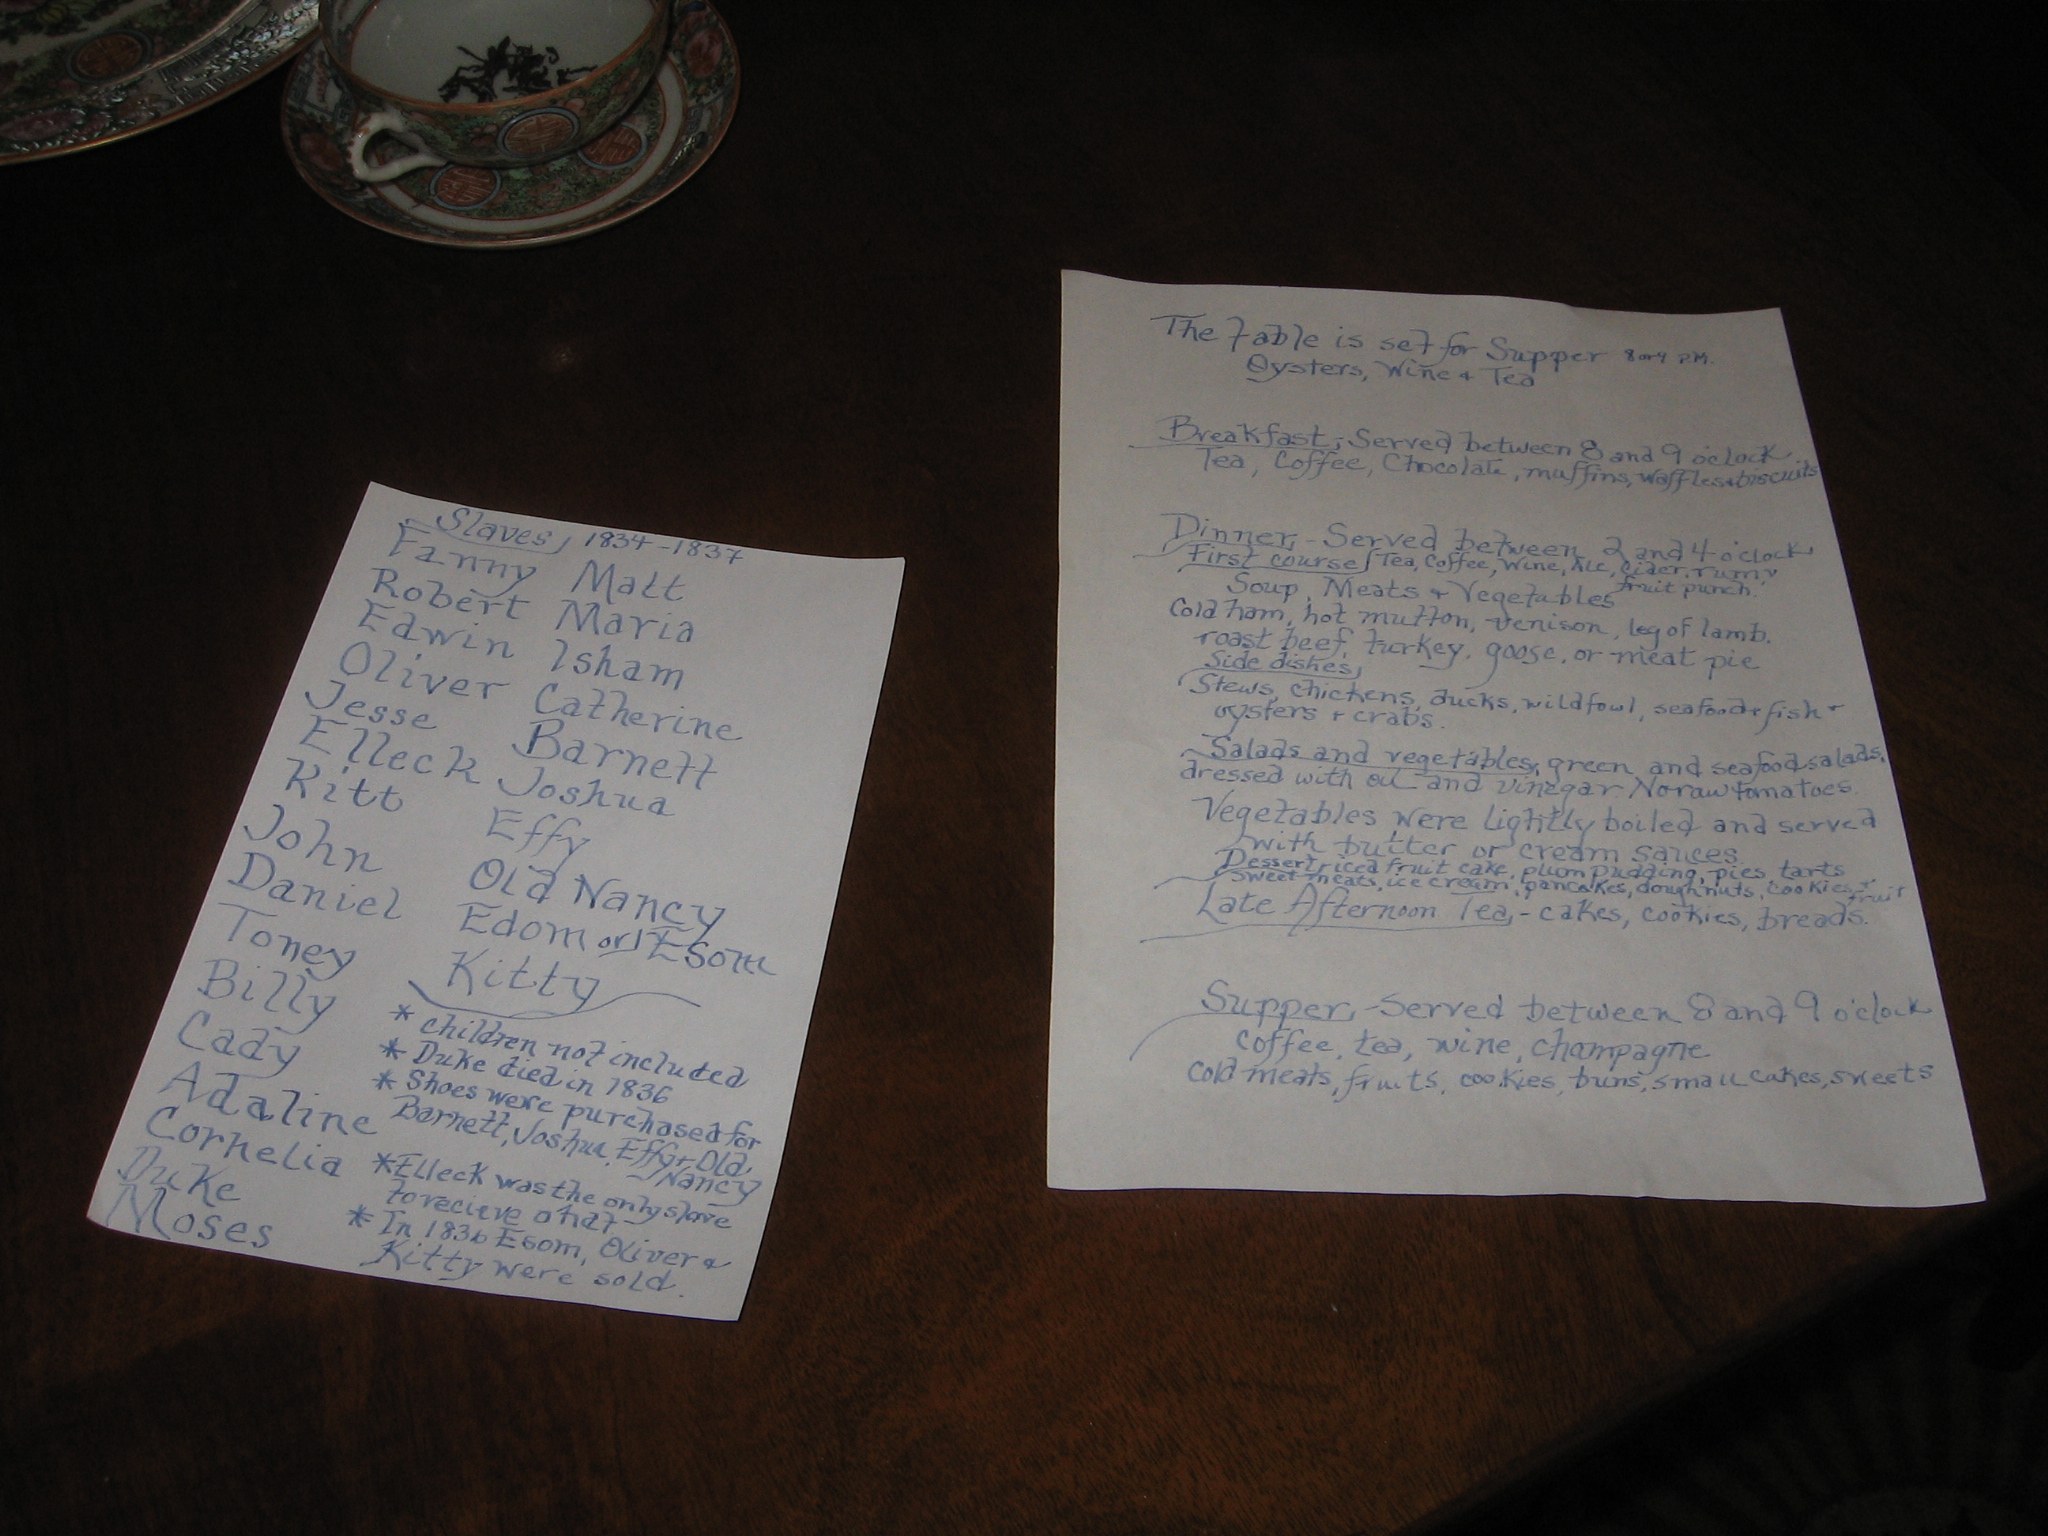 Slaves, 1834-1837
Fanny
Robert
Edwin
Oliver
Jesse
Elleck
Kitt
John
Daniel
Toney
Billy
Cady
Adaline
Cornelia
Duke
Moses
Matt
Maria
Isham
Catherine
Barnett
Joshua
Effy
Old Nancy
Edom or Esom
Kitty
* children not included
* Duke died in 1836
* Shoes were purchased for
Barnett, Joshua, Effy + Old
Nancy
* Elleck was the only slave
to recieve a hat
* In 1836 Esom, Oliver &
Kitty were sold.
The table is set for Supper 8 or 9 P.M.
Oysters, Wine & Tea
Breakfast, - Served between 8 and 9 o'clock
Tea, Coffee, Chocolate, muffins, waffles & biscuits
Dinner, - Served between 2 and 4 o'clock
First course / Tea, Coffee, Wine, Ale, Cider, rum,
fruit punch.
Soup, Meats + Vegetables
Cold ham, hot mutton, venison, leg of lamb.
roast beef, turkey, goose, or meat pie
Side dishes,
Stews, chickens, ducks, wildfowl, seafood + fish +
oysters + crabs.
Salads and vegetables, green and seafood salads,
dressed with oil and vinegar. No raw tomatoes.
Vegetables were lightly boiled and served
with butter or cream sauces
Dessert, iced fruit cake, plum pudding, pies, tarts
Sweet meats, ice cream, pancakes, doughnuts, cookies +
fruit
Late Afternoon Tea, - cakes, cookies, breads.
Supper, - Served between 8 and 9 o'clock
coffee, tea, wine, champagne
cold meats, fruits, cookies, buns, small cakes, sweets